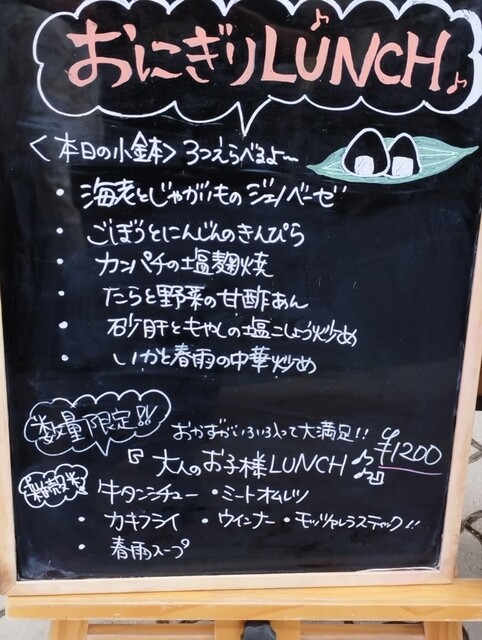 おにぎりLUNCH
〈本日の小鉢〉3つえらべるよ〜
・海老とじゃがいものジェノベーゼ
・ごぼうとにんじんのきんぴら
・カンパチの塩麹焼
・たらと野菜の甘酢あん
・砂肝ともやしの塩こしょう炒め
・いかと春雨の中華炒め
数量限定!!
おかずがいろいろ入って大満足!!
『大人のお子様LUNCH♪』 ¥1200
雑穀米
・牛タンシチュー ・ミートオムレツ
・カキフライ ・ウインナー ・モッツァレラスティック!!
・春雨スープ